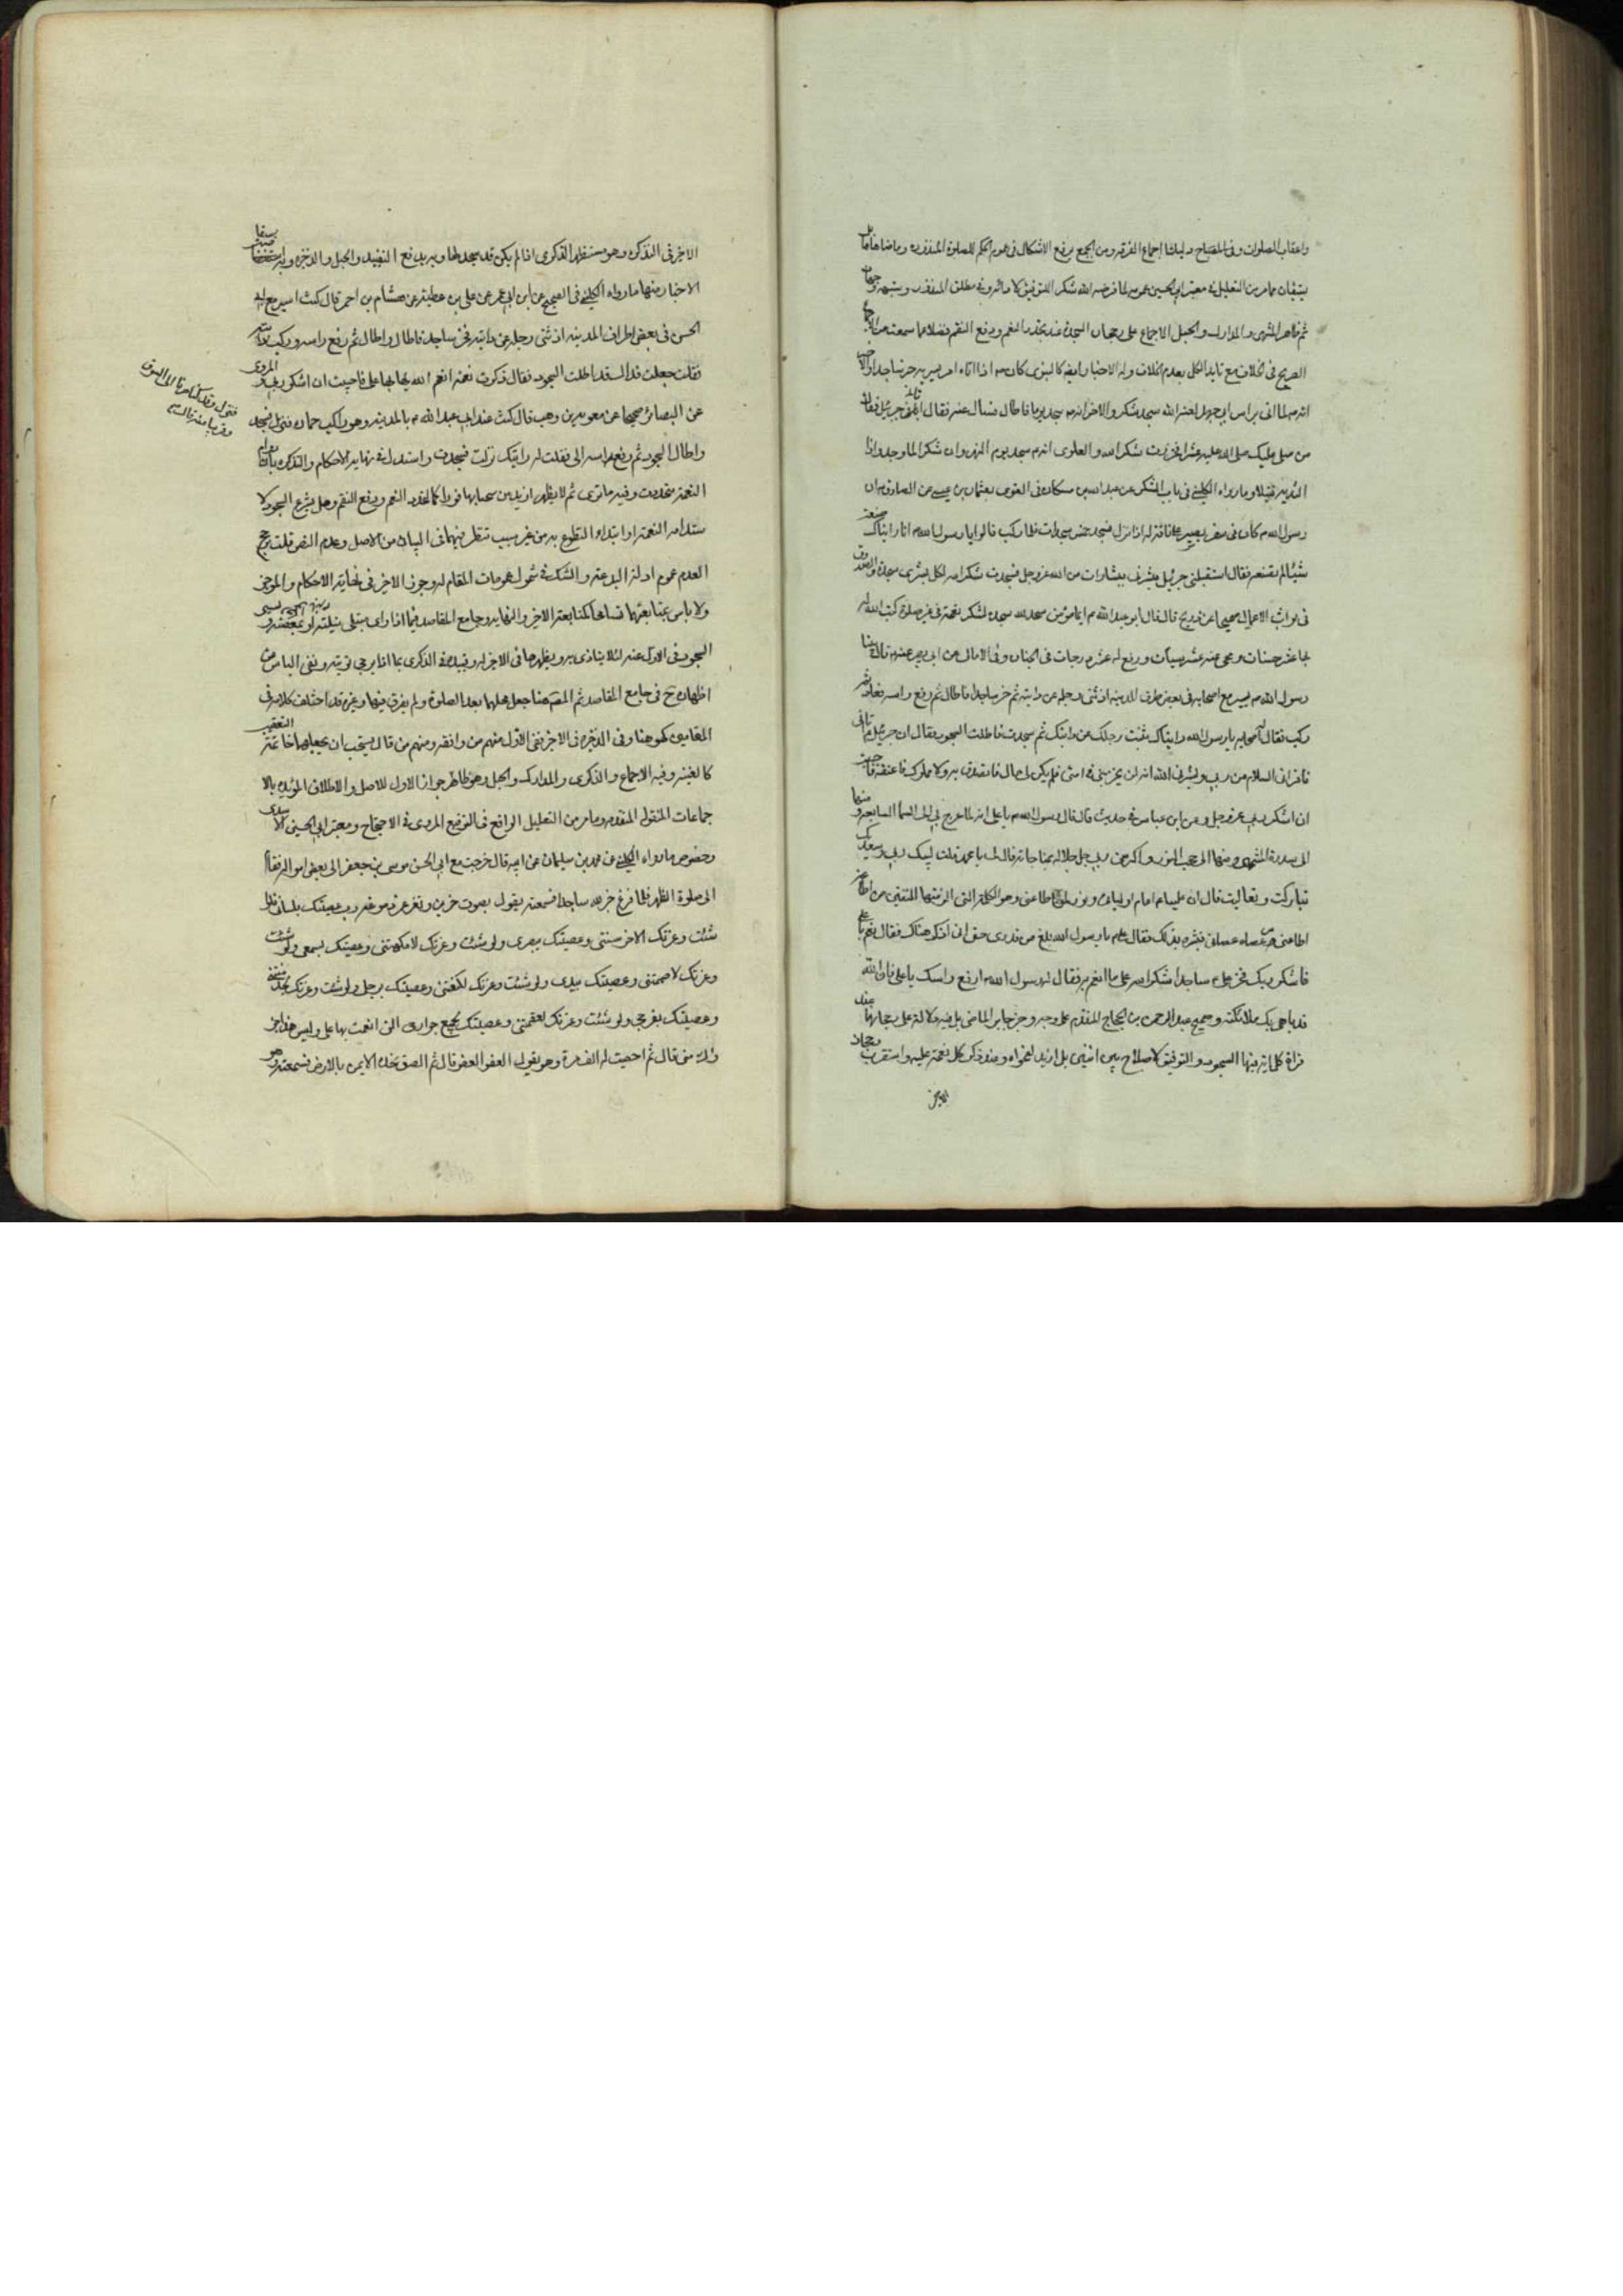 واعقاب الصلوات وفى المصباح دليلنا اجماع الفرقه ومن الجمع يرفع الاشكال فى عموم الحكم للصلوة المنذوره
يتيقان مما مر من التعليل فى معتبر ابى الحسين عموم لما فرضه الله شكر التوفيق
ثم ظاهر المنتهى والمدارك والحبل الاجماع على رجحان السجدة عند تجدد النعم ودفع النقم فضلا عما سمعته من
الصريح فى الخلاف مع تايد الكل بعدم الخلاف وله الاخبار ايضا كالنبوى كان ص اذا اتاه امر يسر به خر ساجدا
انه ص لما اتى براس ابى جهل لعنه الله سجد شكرا والاخر انه ص سجد يوما فاطال فسال عنه فقال اتانى جبرئيل فقال
من صلى عليك صلى الله عليه عشرا فخررت شكرا لله والعلوى انه ع سجد يوم النهروان شكرا لما وجدوا ذا
الثديه قتيلا وما رواه الكلينى فى باب الشكر عن عبد الله بن مسكان فى القوى بعثمان بن عيسى عن الصادق ع ان
رسول الله ص كان فى سفر يسير على ناقة له اذ نزل فسجد خمس سجدات فلما ركب قالوا يا رسول الله ص انا رايناك صنعت
شيئا لم تصنعه فقال استقبلنى جبرئيل فبشرنى ببشارات من الله عز وجل فسجدت شكرا لله لكل بشرى سجدة والصدوق
فى ثواب الاعمال صحيحا عن ذريح قال قال ابو عبد الله ع ايما مؤمن سجد لله سجدة لشكر نعمة فى غير صلوة كتب الله له
بها عشر حسنات ومحى عنه عشر سيئات ورفع له عشر درجات فى الجنان وفى الامالى عن ابى بصير عنه ع قال بينا
رسول الله ص يسير مع اصحابه فى بعض طرق المدينه اذ ثنى رجله عن دابته ثم خر ساجدا فاطال ثم رفع راسه فعاد ثم
ركب فقال له اصحابه يا رسول الله رايناك ثنيت رجلك عن دابتك ثم سجدت فاطلت السجود فقال ان جبرئيل اتانى
فاقرانى السلام من ربى وبشرنى الله انه لن يخزينى فى امتى فلم يكن لى مال فاتصدق به ولا مملوك فاعتقه فاحببت
ان اشكر ربى عز وجل وعن ابن عباس فى حديث قال قال رسول الله ص يا على انه لما عرج بى الى السماء السابعه ومنها
الى سدرة المنتهى ومنها الى حجب النور واكرمنى ربى جل جلاله بمناجاته قال لى يا محمد قلت لبيك ربى وسعديك
تباركت وتعاليت قال ان عليا ع امام اوليائى ونور لمن اطاعنى وهو الكلمة التى الزمتها المتقين من اطاعه
اطاعنى ومن عصاه عصانى فبشره بذلك فقال على ع يا رسول الله بلغ من قدرى حتى انى اذكر هناك فقال نعم يا على
فاشكر ربك فخر على ع ساجدا شكرا لله على ما انعم به فقال له رسول الله ص ارفع راسك يا على فان الله
قد باهى بك ملائكته وصحيح عبد الرحمن بن الحجاج المتقدم على وجه وخبر جابر الماضى بل فيه دلالة على رجحانها عند
قراة كل اية فيها السجود والتوفيق لاصلاح بين اثنين بل ازيد لفحواه وعند ذكر كل نعمة عليه واستقرب
الاخير
الاخير فى التذكره وهو مستظهر الذكرى اذا لم يكن قد سجد لها ويريد فع التقييد والحبل والذخيره
الاخبار منها ما رواه الكلينى فى الصحيح عن ابن ابى عمير عن على بن عطيه عن هشام بن احمر قال كنت اسير مع ابى
الحسن فى بعض اطراف المدينه اذ ثنى رجله عن دابته فخر ساجدا فاطال واطال ثم رفع راسه وركب دابته
فقلت جعلت فداك قد اطلت السجود فقال ذكرت نعمة انعم الله بها على فاحببت ان اشكر ربى والمروى
عن البصائر صحيحا عن معويه بن وهب قال كنت عند ابى عبد الله ع بالمدينه وهو راكب حماره فنزل فسجد
واطال السجود ثم رفع راسه الى فقلت له رايتك نزلت فسجدت واستدل فى نهاية الاحكام والتذكره
النعمة متجددت وفيه ما ترى ثم لا يظهر ازيد من سحبابها فورا كما لتجدد النعم ودفع النقم وهل يشرع السجود لا
ستدامه النعمة او ابتداء التطوع به من غير سبب تنظر فيهما فى البيان من الاصل وعدم النص قلت يرجح
العدم عموم ادلة البدعة والشك فى شمول عمومات المقام له وجوز الاخر فى نهاية الاحكام والموجز
ولا باس بمتابعتهما تسامحا كمتابعة الاخير والنهايه وجامع المقاصد فيما اذا راى مبتلى ببليته
السجود فى الاول عنه لئلا يتاذى به ويظهرها فى الاخر له وقيده فى الذكرى بما اذا يرجى توبته ونفى الباس من
اظهاره ح فى جامع المقاصد ثم المصنف هنا جعل محلهما بعد الصلوة ولم يفرق بينهما وغيره قد اختلف كلامهم فى
المقامين كهو هنا وفى الذخيره فى الاخر ففى الاول منهم من وافقه ومنهم من قال يستحب ان يجعلهما خاتمة التعقيب
كالغنيه وفيه الاجماع والذكرى والمدارك والحبل وهو ظاهر جواز الاول للاصل والاطلاق المؤيده بالا
جماعات المنقوله المتقدمه وما مر من التعليل الواقع فى التوقيع المروى فى الاحتجاج ومعتبر ابى الحسين الاسدى
وخصوص ما رواه الكلينى عن محمد بن سليمان عن ابيه قال خرجت مع ابى الحسن موسى بن جعفر الى بعض امواله فقام
الى صلوة الظهر فلما فرغ خر لله ساجدا فسمعته يقول بصوت حزين وتغرغر دموعه رب عصيتك بلسانى ولو
شئت وعزتك لاخرستنى وعصيتك ببصرى ولو شئت وعزتك لاكمهتنى وعصيتك بسمعى ولو شئت
وعزتك لاصممتنى وعصيتك بيدى ولو شئت وعزتك لكنعتنى وعصيتك برجلى ولو شئت وعزتك لجذمتنى
وعصيتك بفرجى ولو شئت وعزتك لعقمتنى وعصيتك بجميع جوارحى التى انعمت بها على وليس هذا جز
اؤك منى قال ثم احصيت له الف مرة وهو يقول العفو العفو قال ثم الصق خده الايمن بالارض فسمعته وهو